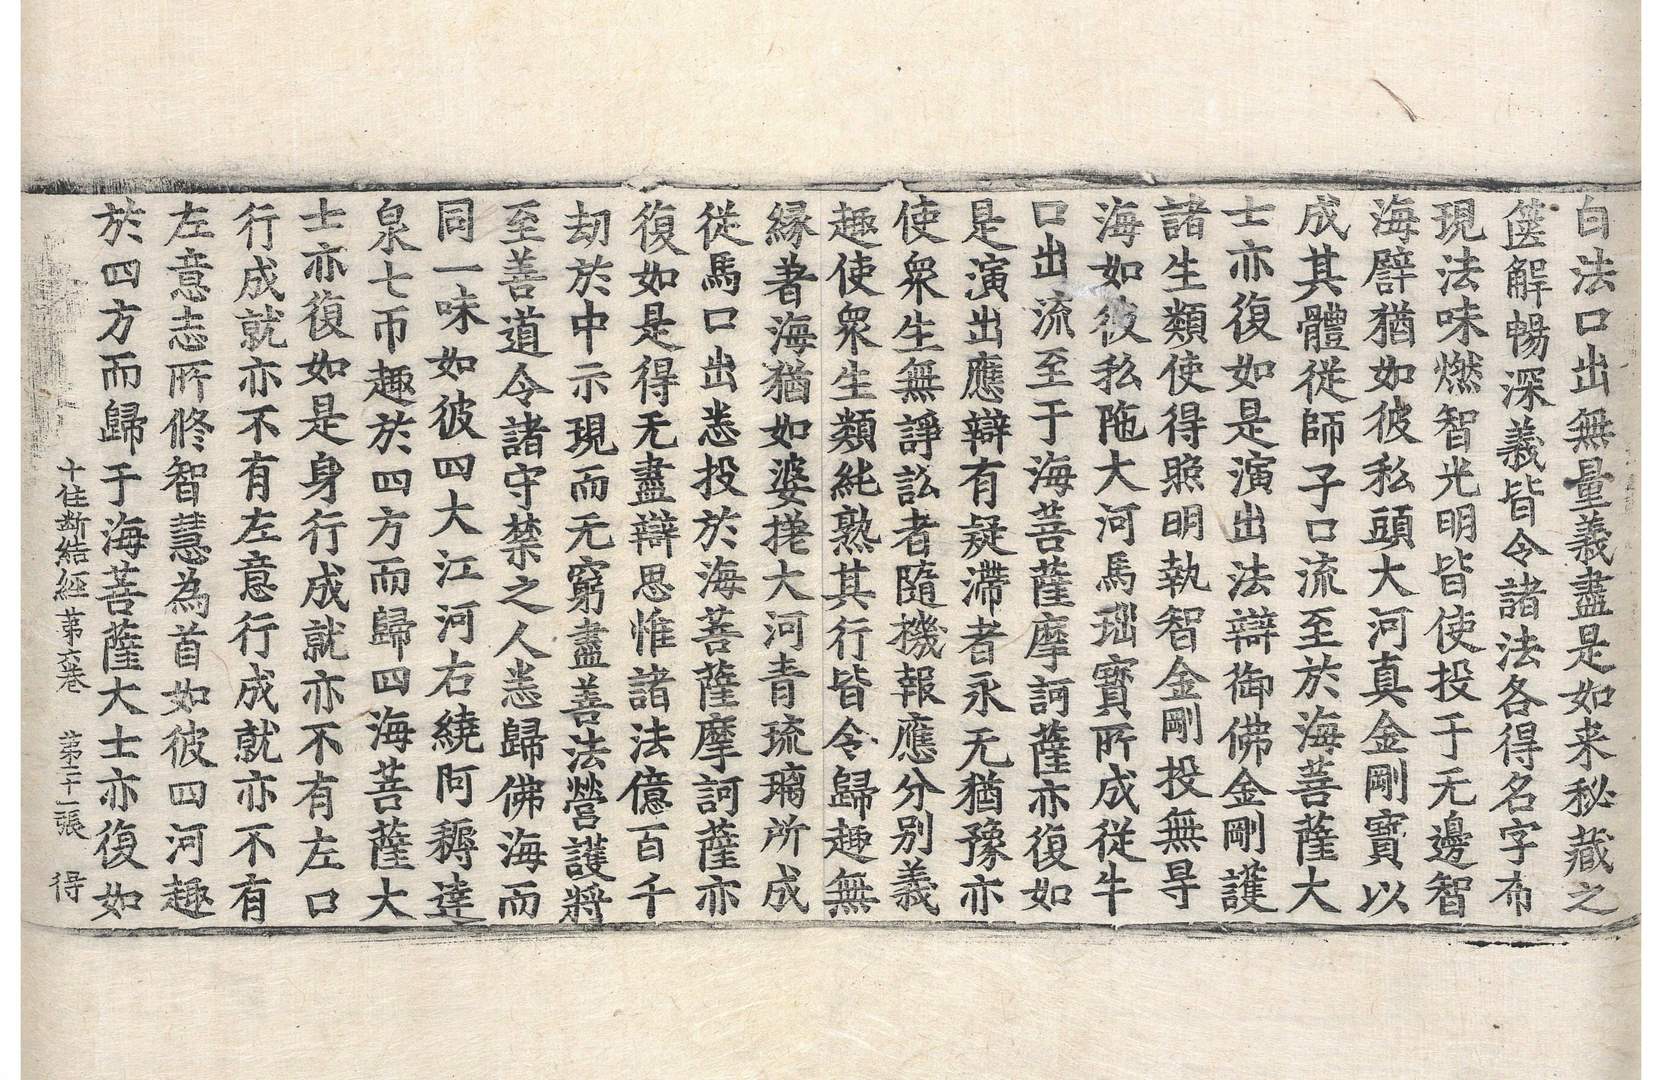 白法口出無量義盡是如来秘藏之
篋解暢深義皆令諸法各得名字布
現法味燃智光明皆使投于无邊智
海譬猶如彼私頭大河真金剛寶以
成其體從師子口流至於海菩薩大
士亦復如是演出法辯御佛金剛護
諸生類使得照明執智金剛投無㝵
海如彼私陁大河馬瑙寶所成從牛
口出流至于海菩薩摩訶薩亦復如
是演出應辯有疑滯者永无猶豫亦
使衆生無諍訟者隨機報應分別義
趣使衆生類純熟其行皆令歸趣無
緣著海猶如婆捲大河青琉璃所成
從馬口出悉投於海菩薩摩訶薩亦
復如是得无盡辯思惟諸法億百千
劫於中示現而无窮盡善法營護將
至善道令諸守禁之人悉歸佛海而
同一味如彼四大江河右繞阿耨達
泉七帀趣於四方而歸四海菩薩大
士亦復如是身行成就亦不有左口
行成就亦不有左意行成就亦不有
左意志所修智慧為首如彼四河趣
於四方而歸于海菩薩大士亦復如
十住断結經第六卷 第二十一張 得